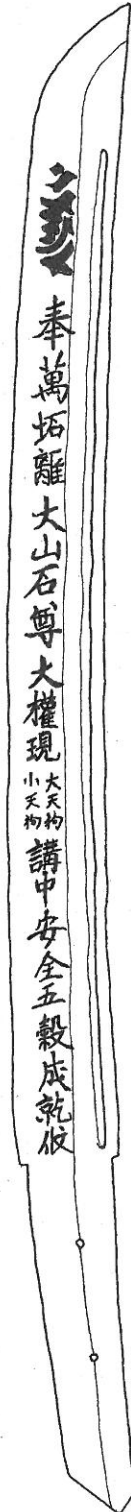 奉萬垢離大山石尊大權現
大天狗
小天狗
講中安全五穀成乾攸